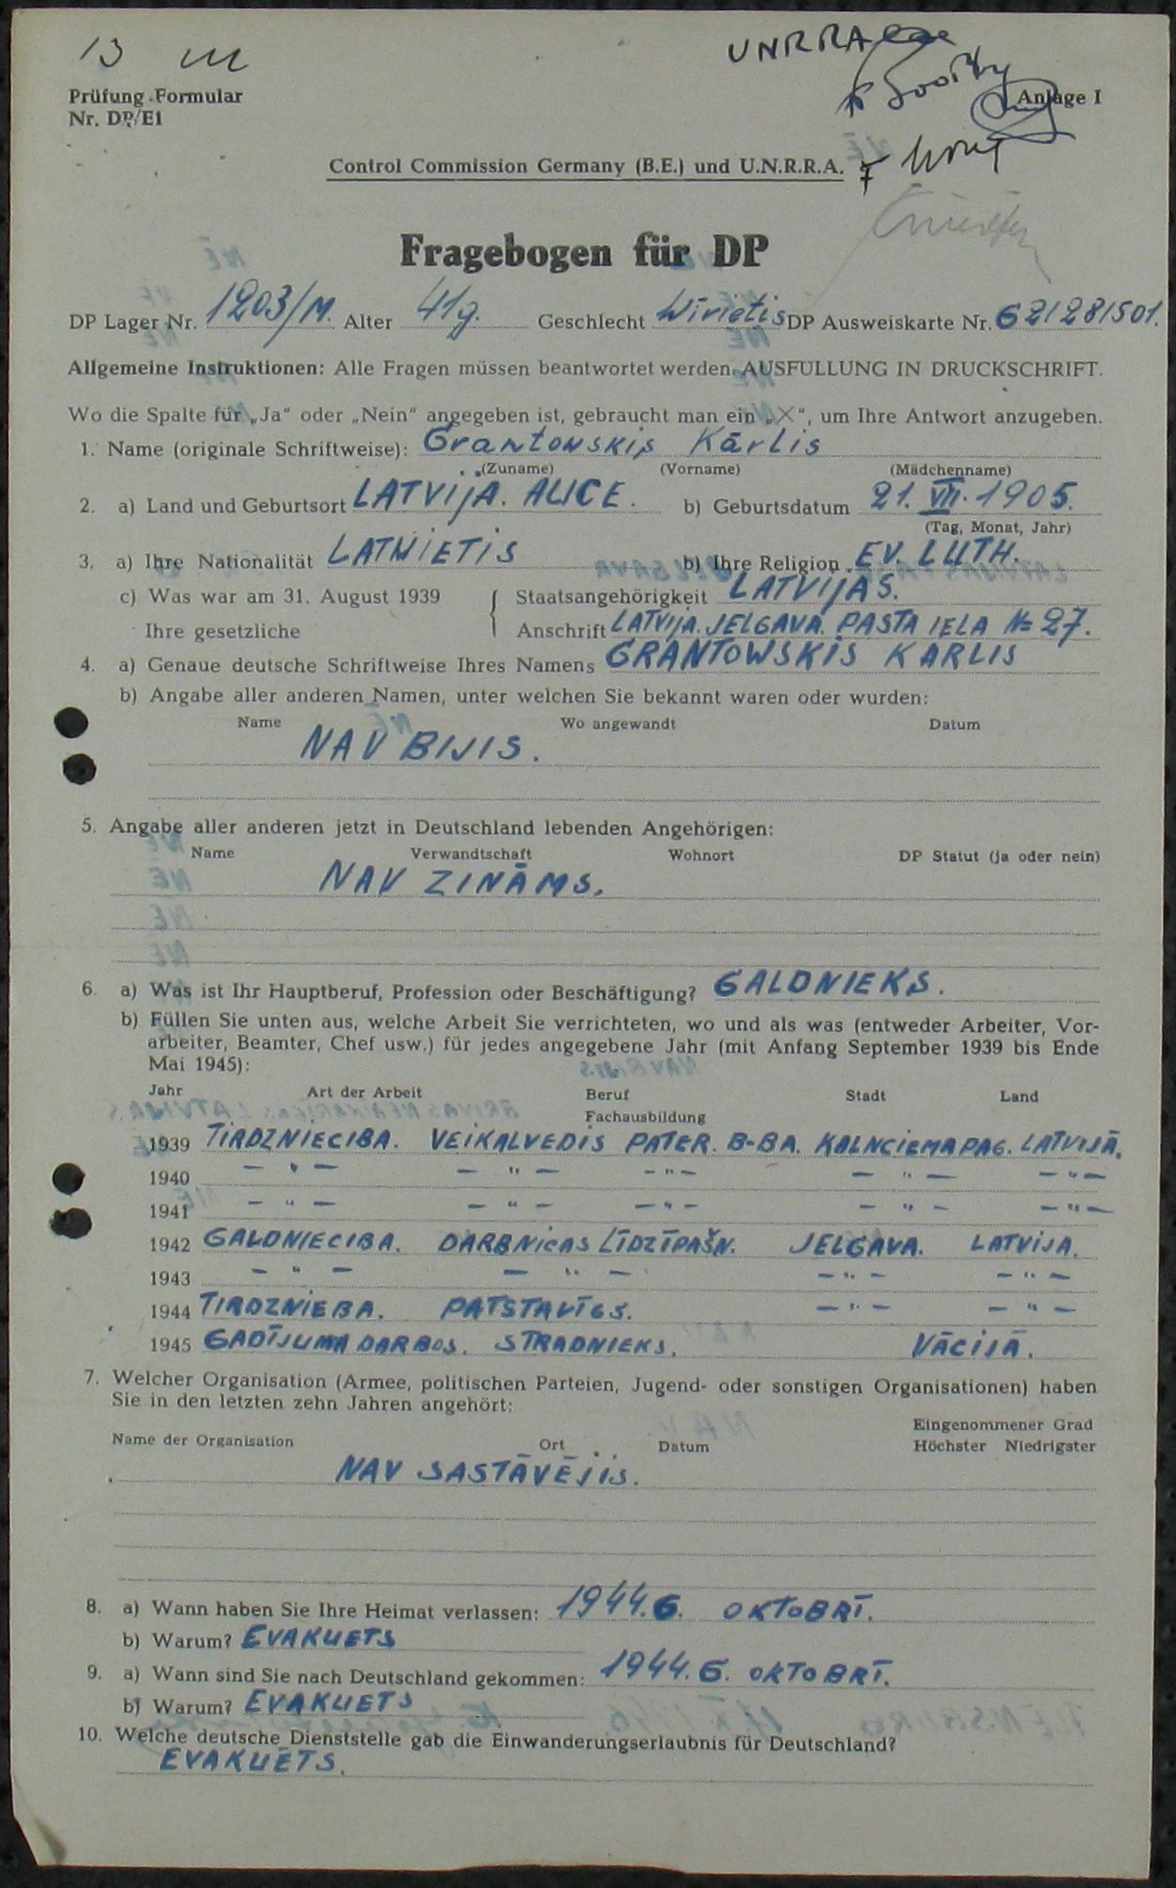 13
UNRRA
Prüfung-Formular
Nr. DP/E1
Anlage I
Control Commission Germany (B.E.) und U.N.R.R.A.
Fragebogen für DP
DP Lager Nr. 1203/M. Alter 41g. Geschlecht Wīrietis DP Ausweiskarte Nr. 621281501.
Allgemeine Instruktionen: Alle Fragen müssen beantwortet werden. AUSFÜLLUNG IN DRUCKSCHRIFT.
Wo die Spalte für „Ja“ oder „Nein“ angegeben ist, gebraucht man ein „X“, um Ihre Antwort anzugeben.
1. Name (originale Schriftweise): Grantowskis Kārlis
(Zuname) (Vorname) (Mädchenname)
2. a) Land und Geburtsort LATVIJA. ALICE. b) Geburtsdatum 21. VII. 1905.
(Tag, Monat, Jahr)
3. a) Ihre Nationalität LATWIETIS b) Ihre Religion EV. LUTH.
c) Was war am 31. August 1939 Staatsangehörigkeit LATVIJAS.
Ihre gesetzliche Anschrift LATVIJA. JELGAVA. PASTA IELA № 27.
4. a) Genaue deutsche Schriftweise Ihres Namens GRANTOWSKIS KARLIS
b) Angabe aller anderen Namen, unter welchen Sie bekannt waren oder wurden:
Name Wo angewandt Datum
NAV BIJIS.
5. Angabe aller anderen jetzt in Deutschland lebenden Angehörigen:
Name Verwandtschaft Wohnort DP Statut (ja oder nein)
NAV ZINĀMS.
6. a) Was ist Ihr Hauptberuf, Profession oder Beschäftigung? GALDNIEKS.
b) Füllen Sie unten aus, welche Arbeit Sie verrichteten, wo und als was (entweder Arbeiter, Vor-
arbeiter, Beamter, Chef usw.) für jedes angegebene Jahr (mit Anfang September 1939 bis Ende
Mai 1945):
Jahr Art der Arbeit Beruf Stadt Land
Fachausbildung
1939 TIRDZNIECIBA. VEIKALVEDIS PATER. B-BA. KALNCIEMA PAG. LATVIJĀ.
1940 – " – – " – – " – – " – – " –
1941 – " – – " – – " – – " – – " –
1942 GALDNIECIBA. DARBNICAS LĪDZĪPAŠN. JELGAVA. LATVIJA.
1943 – " – – " – – " – – " –
1944 TIRDZNIEBA. PATSTAVĪGS. – " – – " –
1945 GADĪJUMA DARBOS. STRADNIEKS. VĀCIJĀ.
7. Welcher Organisation (Armee, politischen Parteien, Jugend- oder sonstigen Organisationen) haben
Sie in den letzten zehn Jahren angehört:
Eingenommener Grad
Name der Organisation Ort Datum Höchster Niedrigster
NAV SASTĀVĒJIS.
8. a) Wann haben Sie Ihre Heimat verlassen: 1944. 6. OKTOBRĪ.
b) Warum? EVAKUETS
9. a) Wann sind Sie nach Deutschland gekommen: 1944. 6. OKTOBRĪ.
b) Warum? EVAKUETS
10. Welche deutsche Dienststelle gab die Einwanderungserlaubnis für Deutschland?
EVAKUĒTS.